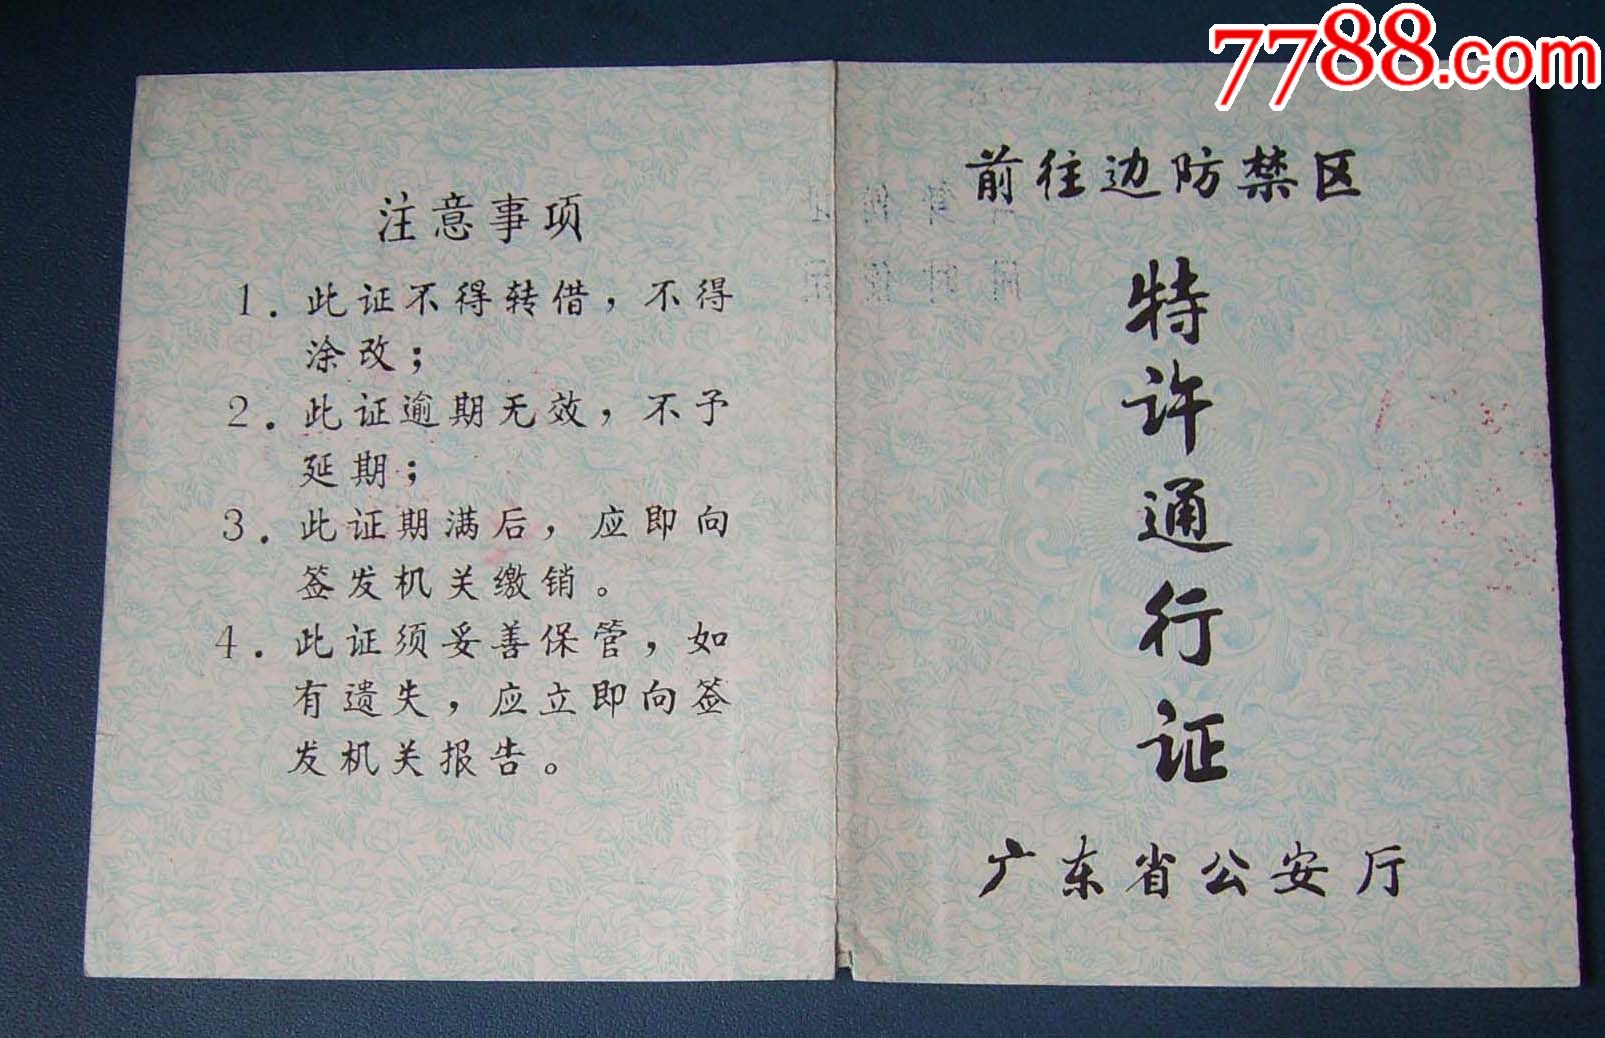 7788.com
注意事项
1. 此证不得转借，不得
涂改；
2. 此证逾期无效，不予
延期；
3. 此证期满后，应即向
签发机关缴销。
4. 此证须妥善保管，如
有遗失，应立即向签
发机关报告。
前往边防禁区
特许通行证
广东省公安厅